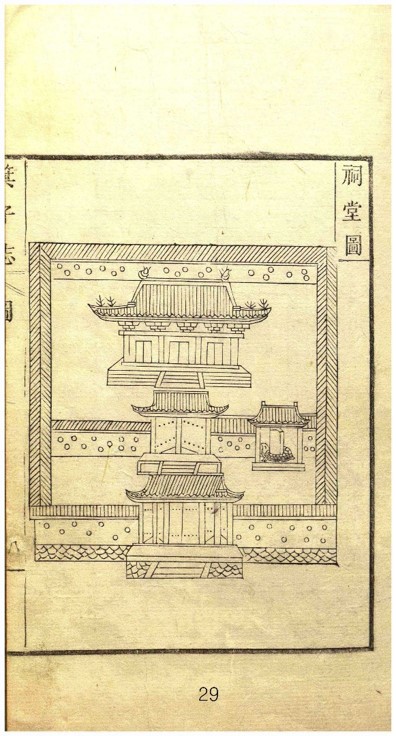 祠堂圖
箕子志 圖
29